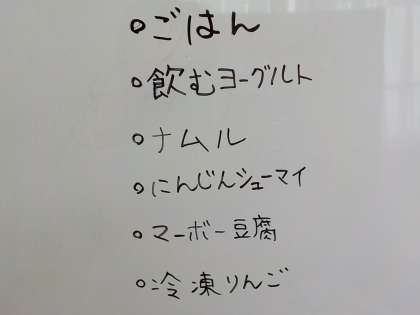 ○ごはん
○飲むヨーグルト
○ナムル
○にんじんシューマイ
○マーボー豆腐
○冷凍りんご